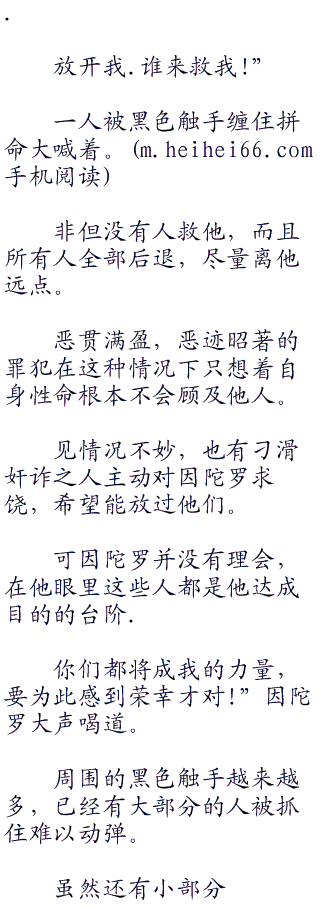 .
放开我.谁来救我!”
一人被黑色触手缠住拼
命大喊着。(m.heihei66.com
手机阅读)
非但没有人救他，而且
所有人全部后退，尽量离他
远点。
恶贯满盈，恶迹昭著的
罪犯在这种情况下只想着自
身性命根本不会顾及他人。
见情况不妙，也有刁滑
奸诈之人主动对因陀罗求
饶，希望能放过他们。
可因陀罗并没有理会，
在他眼里这些人都是他达成
目的的台阶.
你们都将成我的力量，
要为此感到荣幸才对!”因陀
罗大声喝道。
周围的黑色触手越来越
多，已经有大部分的人被抓
住难以动弹。
虽然还有小部分